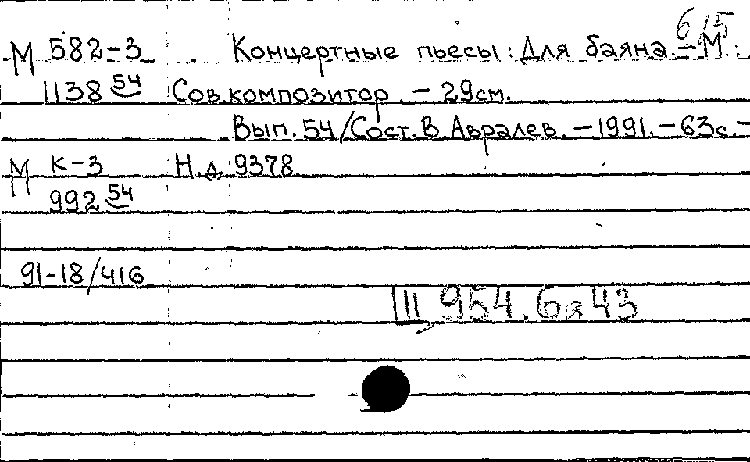 6/5
М 582-3 Концертные пьесы: Для баяна. - М.:
1138 54 Сов. композитор. - 29см.
Вып. 54/Сост. В. Авралев. - 1991. - 63с. -
М К-3 Н.д. 9378
992 54
91-18/416
Щ 954.6я43